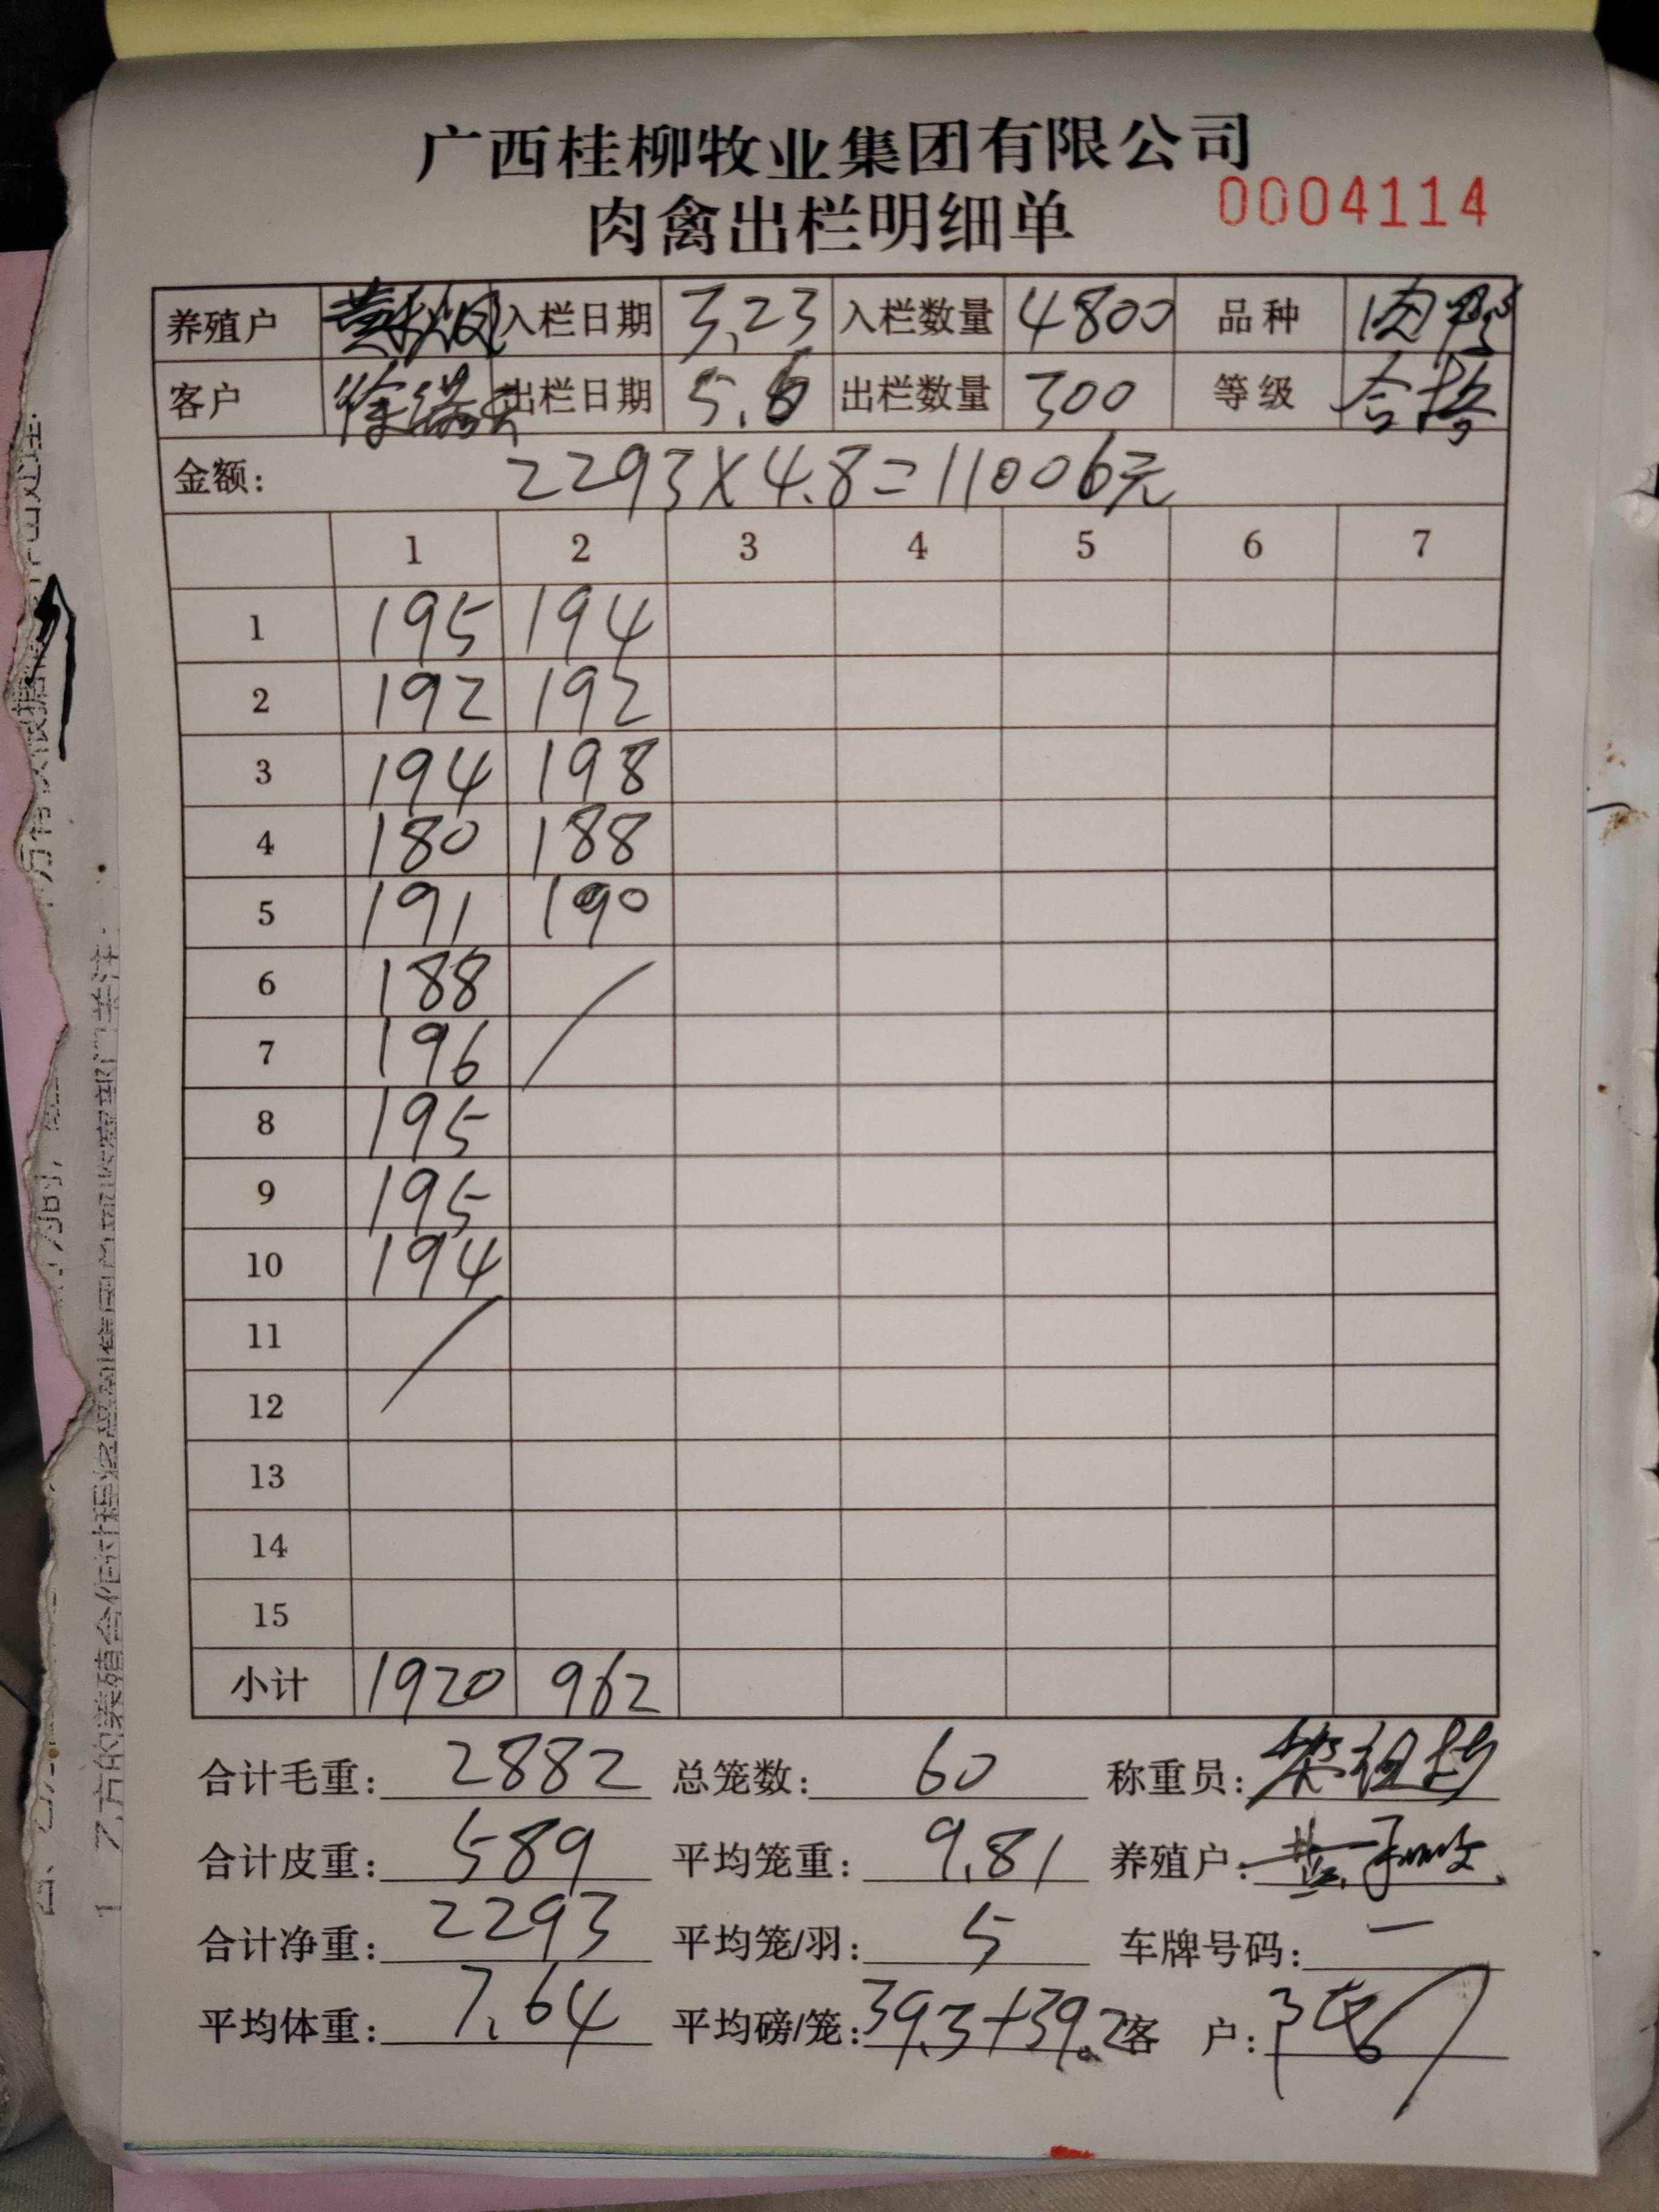 广西桂柳牧业集团有限公司
肉禽出栏明细单 0004114
养殖户 入栏日期 3.23 入栏数量 4800 品种 肉鸭
客户 出栏日期 5.6 出栏数量 300 等级 合格
金额: 2293×4.8=11006元
1 2 3 4 5 6 7
1 195 194
2 192 192
3 194 198
4 180 188
5 191 190
6 188
7 196
8 195
9 195
10 194
11
12
13
14
15
小计 1920 962
合计毛重: 2882 总笼数: 60 称重员:
合计皮重: 589 平均笼重: 9.81 养殖户:
合计净重: 2293 平均笼/羽: 5 车牌号码: 一
平均体重: 7.64 平均磅/笼: 39.3+39.2 客户: